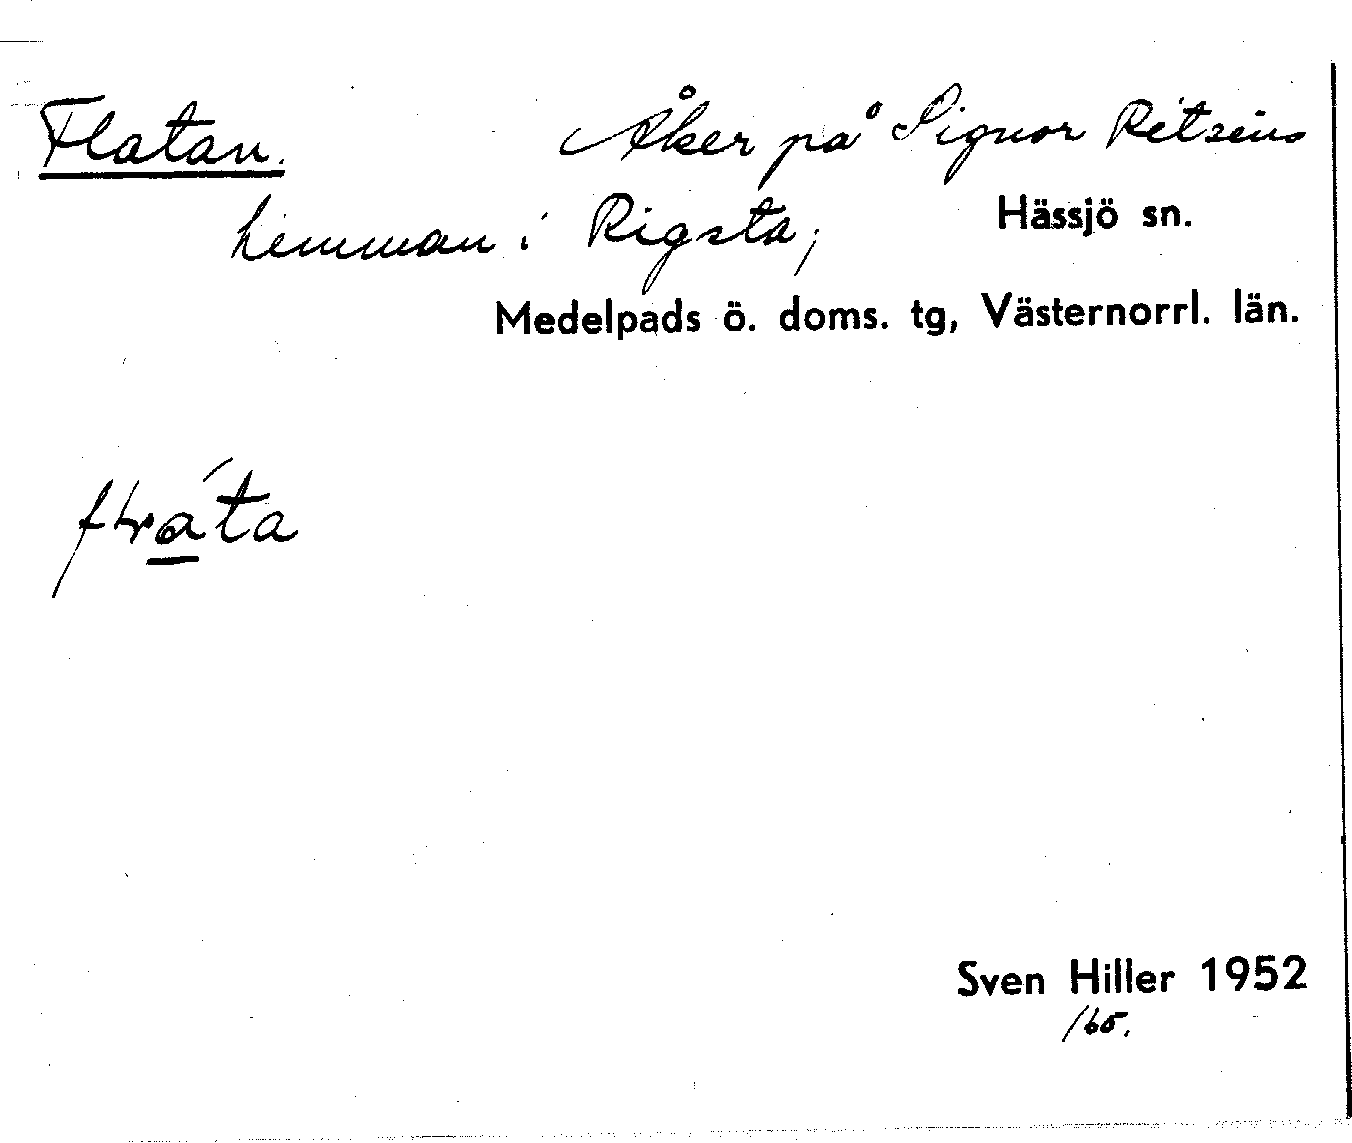 Flatan. Åker på Signor Ritzéns
hemman i Rigsta, Hässjö sn.
Medelpads ö. doms. tg, Västernorrl. län.
Sven Hiller 1952
/65.